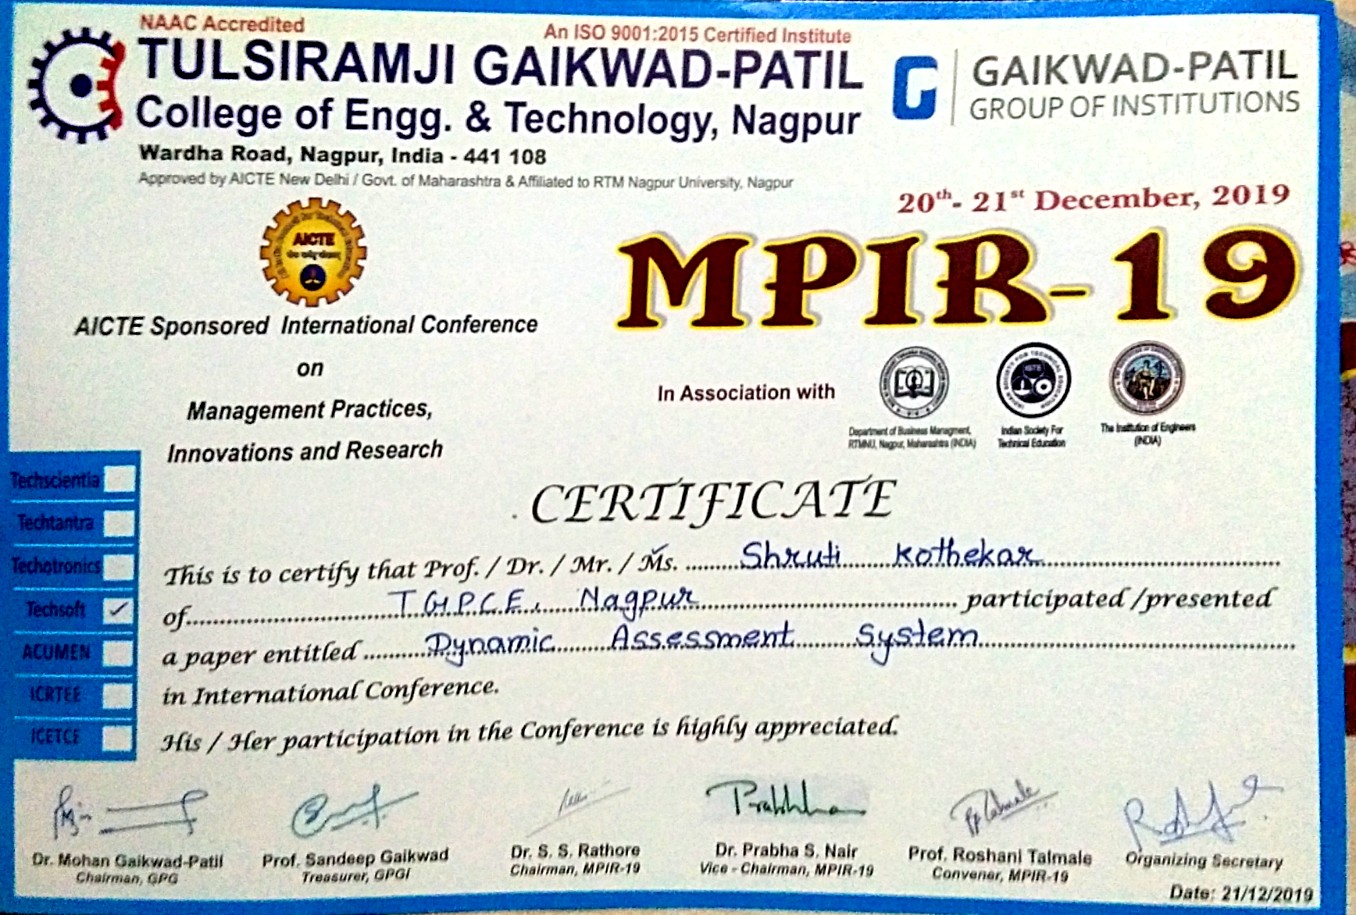 NAAC Accredited
An ISO 9001:2015 Certified Institute
TULSIRAMJI GAIKWAD-PATIL
College of Engg. & Technology, Nagpur
Wardha Road, Nagpur, India - 441 108
Approved by AICTE New Delhi / Govt. of Maharashtra & Affiliated to RTM Nagpur University, Nagpur
GAIKWAD-PATIL
GROUP OF INSTITUTIONS
20th- 21st December, 2019
MPIR-19
AICTE
AICTE Sponsored International Conference
on
Management Practices,
Innovations and Research
In Association with
Department of Business Managment,
RTMNU, Nagpur, Maharashtra (INDIA)
Indian Society For
Technical Education
The Institution of Engineers
(INDIA)
Techscientia
Techtantra
Techotronics
Techsoft ✓
ACUMEN
ICRTEE
ICETCE
CERTIFICATE
This is to certify that Prof. / Dr. / Mr. / Ms. Shruti Kothekar
of TGPCE, Nagpur participated /presented
a paper entitled Dynamic Assessment System
in International Conference.
His / Her participation in the Conference is highly appreciated.
Dr. Mohan Gaikwad-Patil
Chairman, GPG
Prof. Sandeep Gaikwad
Treasurer, GPGI
Dr. S. S. Rathore
Chairman, MPIR-19
Prabhha
Dr. Prabha S. Nair
Vice - Chairman, MPIR-19
Prof. Roshani Talmale
Convener, MPIR-19
Organizing Secretary
Date: 21/12/2019